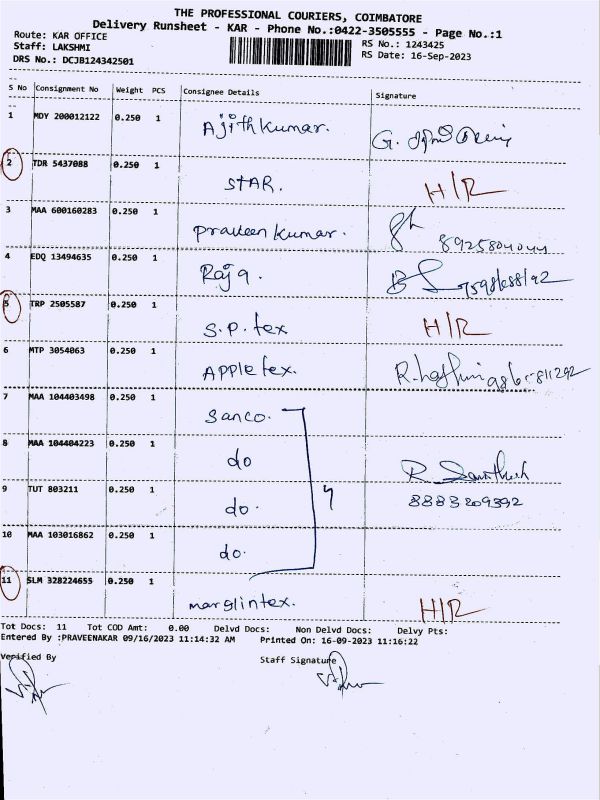 THE PROFESSIONAL COURIERS, COIMBATORE
Delivery Runsheet - KAR - Phone No.:0422-3505555 - Page No.:1
Route: KAR OFFICE RS No.: 1243425
Staff: LAKSHMI RS Date: 16-Sep-2023
DRS No.: DCJB124342501
S No Consignment No Weight PCS Consignee Details Signature
1 MDY 200012122 0.250 1 Ajithkumar. G.
2 TDR 5437088 0.250 1 STAR. H/R
3 MAA 600160283 0.250 1 praveen kumar.
4 EDQ 13494635 0.250 1 Raja.
5 TRP 2505587 0.250 1 S.P. tex H/R
6 MTP 3054063 0.250 1 APPle tex.
7 MAA 104403498 0.250 1 Sanco.
8 MAA 104404223 0.250 1 do
9 TUT 803211 0.250 1 do. 4 8883209392
10 MAA 103016862 0.250 1 do.
11 SLM 328224655 0.250 1 marglintex. H/R
Tot Docs: 11 Tot COD Amt: 0.00 Delvd Docs: Non Delvd Docs: Delvy Pts:
Entered By :PRAVEENAKAR 09/16/2023 11:14:32 AM Printed On: 16-09-2023 11:16:22
Verified By Staff Signature